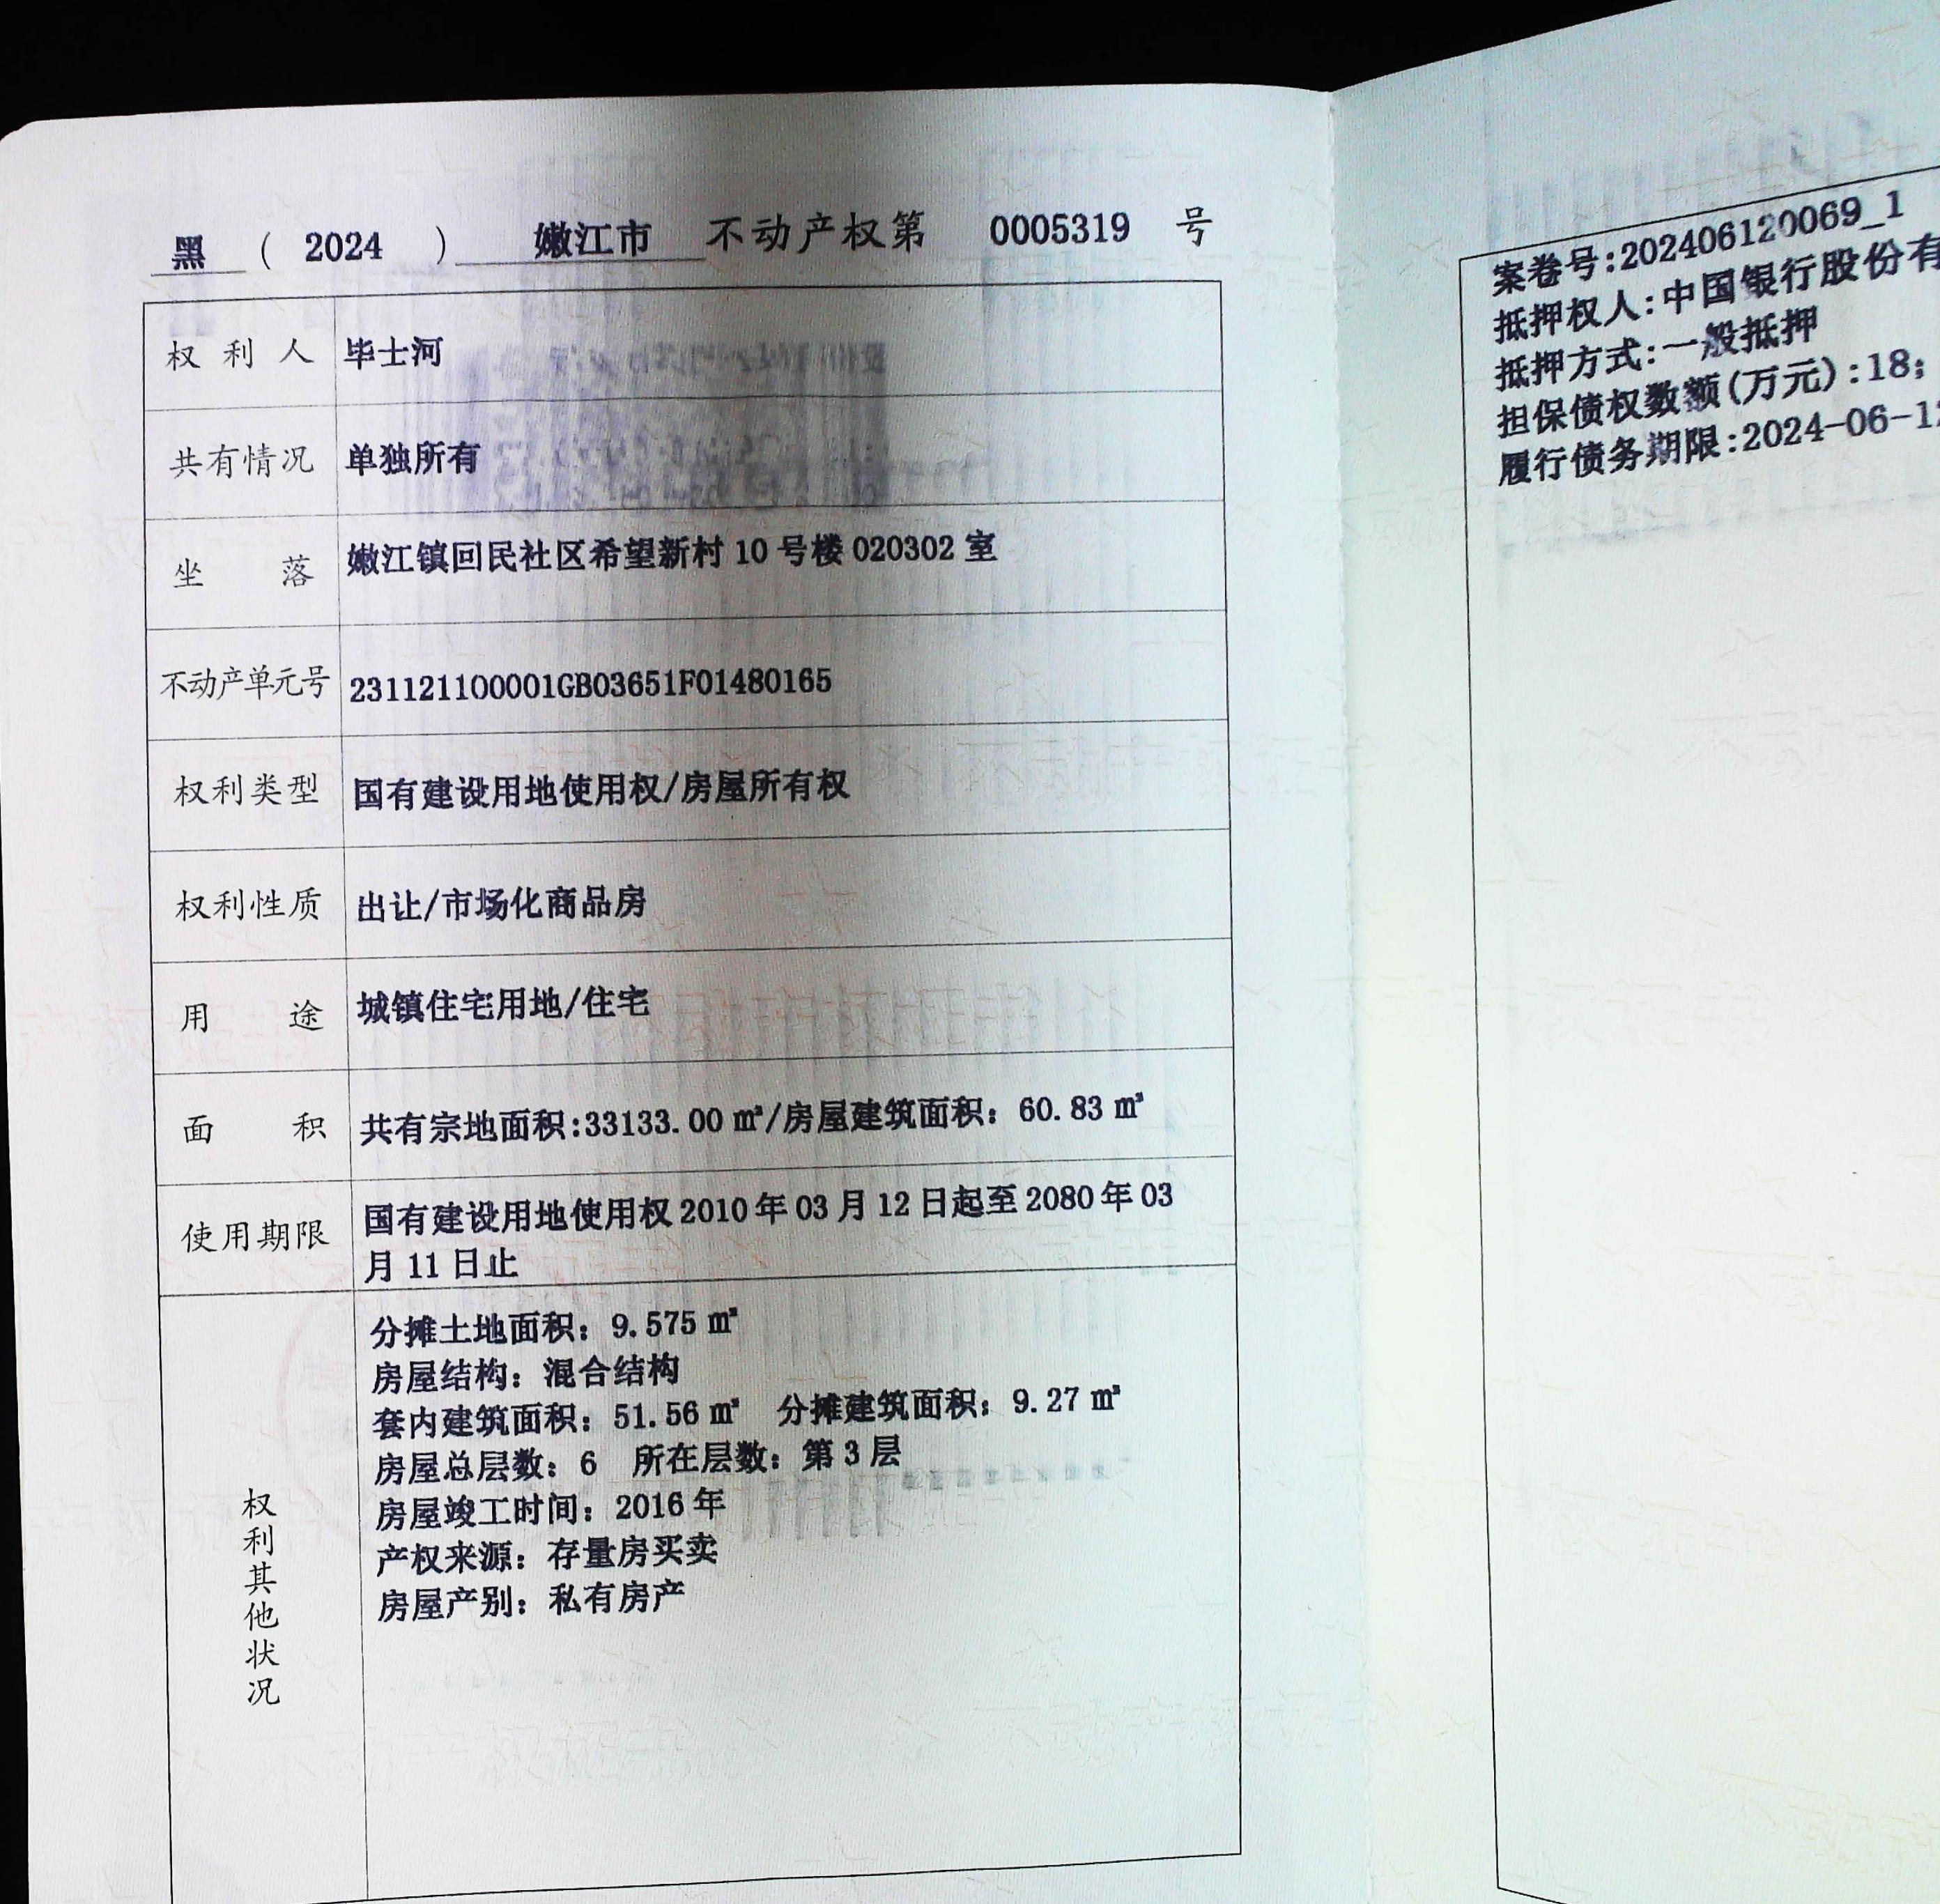 黑 ( 2024 ) 嫩江市 不动产权第 0005319 号
权利人 毕士河
共有情况 单独所有
坐落 嫩江镇回民社区希望新村 10 号楼 020302 室
不动产单元号 231121100001GB03651F01480165
权利类型 国有建设用地使用权/房屋所有权
权利性质 出让/市场化商品房
用途 城镇住宅用地/住宅
面积 共有宗地面积:33133.00 ㎡/房屋建筑面积: 60.83 ㎡
使用期限 国有建设用地使用权 2010 年 03 月 12 日起至 2080 年 03
月 11 日止
权利其他状况
分摊土地面积: 9.575 ㎡
房屋结构: 混合结构
套内建筑面积: 51.56 ㎡ 分摊建筑面积: 9.27 ㎡
房屋总层数: 6 所在层数: 第 3 层
房屋竣工时间: 2016 年
产权来源: 存量房买卖
房屋产别: 私有房产
案卷号:202406120069_1
抵押权人:中国银行股份有
抵押方式:一般抵押
担保债权数额(万元):18;
履行债务期限:2024-06-12